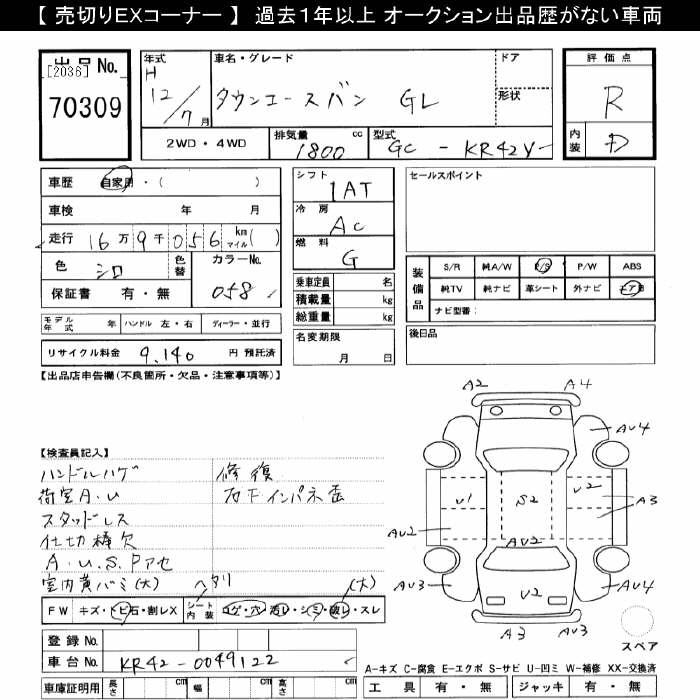 【 売切りEXコーナー 】 過去1年以上 オークション出品歴がない車両
出品 No.
[2036]
70309
年式
H
12/7月
車名・グレード
タウンエースバン GL
ドア
形状
評価点
R
内装
D
2WD・4WD
排気量 cc
1800
型式
GC - KR42V
車歴 自家用・( )
車検 年 月
走行 16万9千056 km マイル( )
色 シロ
色替
カラーNo.
058
保証書 有・無
モデル年式 年 ハンドル 左・右 ディーラー・並行
リサイクル料金 9,140 円 預託済
シフト
1AT
冷房
AC
燃料
G
乗車定員 名
積載量 kg
総重量 kg
名変期限
月 日
セールスポイント
装備品
S/R 純A/W P/S P/W ABS
純TV 純ナビ 革シート 外ナビ エアB
ナビ型番:
後日品
【出品店申告欄(不良箇所・欠品・注意事項等)】
【検査員記入】
ハンドルハゲ
荷室A.U
スタッドレス
仕切棒欠
A.U.S.Pアセ
室内黄バミ(大)
修復
右下インパネ歪
ヘタリ
(大)
FW キズ・トビ石・割レX
シート内装 コゲ・穴・汚レ・シミ・破レ・スレ
登録No.
車台No. KR42-0049122
車庫証明用 長さ cm 幅 cm 高さ cm
A2
A4
AU4
U1
S2
U2
A3
AU2
AU2
AU3
U2
AU4
A3
AU3
スペア
A-キズ C-腐食 E-エクボ S-サビ U-凹ミ W-補修 XX-交換済
工具 有・無 ジャッキ 有・無